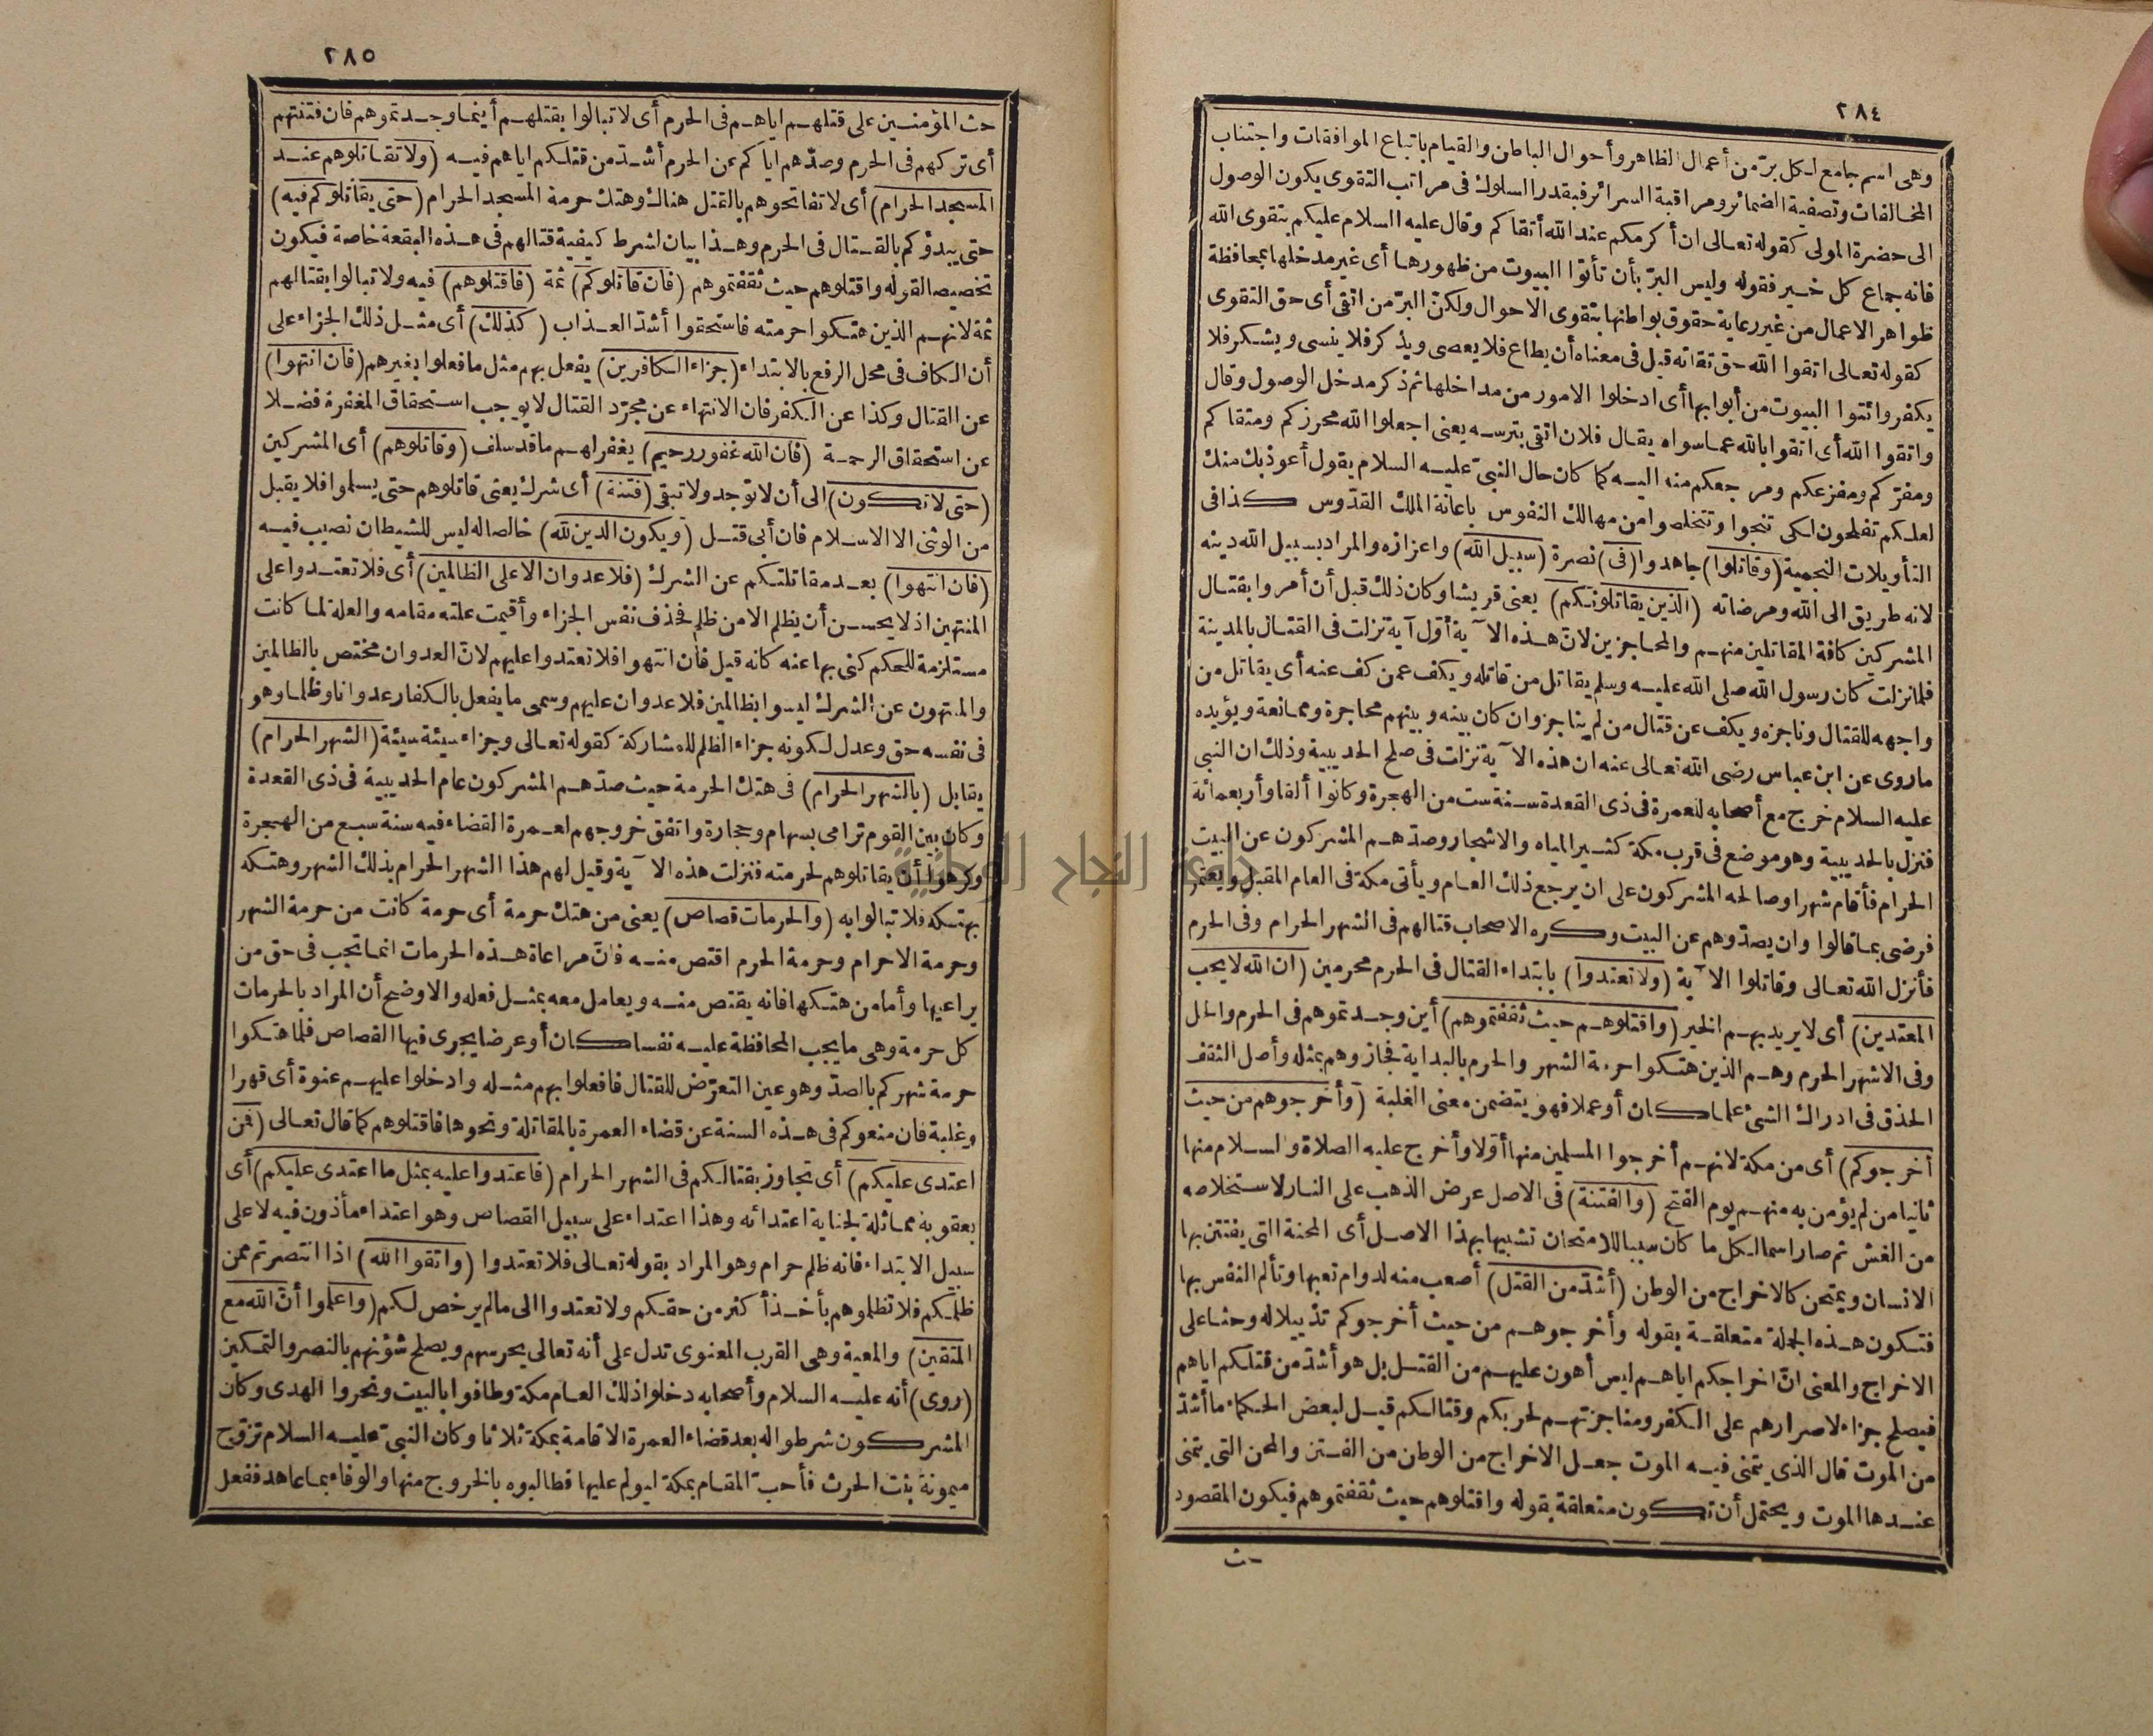 ٢٨٤
وهى اسم جامع لكل بر من أعمال الظاهر وأحوال الباطن والقيام باتباع الموافقات واجتناب
المخالفات وتصفية الضمائر ومراقبة السرائر فبقدر السلوك فى مراتب التقوى يكون الوصول
الى حضرة المولى كقوله تعالى ان أكرمكم عند الله أتقاكم وقال عليه السلام عليكم بتقوى الله
فانه جماع كل خير فقوله وليس البر بأن تأتوا البيوت من ظهورها أى غير مدخلها بمحافظة
ظواهر الاعمال من غير رعاية حقوق بواطنها بتقوى الاحوال ولكن البر من اتقى أى حق التقوى
كقوله تعالى اتقوا الله حق تقاته قيل فى معناه أن يطاع فلا يعصى ويذكر فلا ينسى ويشكر فلا
يكفر وائتوا البيوت من أبوابها أى ادخلوا الامور من مداخلها ثم ذكر مدخل الوصول وقال
واتقوا الله أى اتقوا بالله عما سواه يقال فلان اتقى بترسه يعنى اجعلوا الله محرزكم ومتقاكم
ومفركم ومفزعكم ومرجعكم منه اليه كما كان حال النبى عليه السلام يقول أعوذ بك منك
لعلكم تفلحون لكى تنجوا وتتخلصوا من مهالك النفوس باعانة الملك القدوس كذا فى
التأويلات النجمية (وقاتلوا) جاهدوا (فى) نصرة (سبيل الله) واعزازه والمراد بسبيل الله دينه
لانه طريق الى الله ومرضاته (الذين يقاتلونكم) يعنى قريشا وكان ذلك قبل أن أمروا بقتال
المشركين كافة المقاتلين منهم والمحاجزين لان هذه الآية أول آية نزلت فى القتال بالمدينة
فلما نزلت كان رسول الله صلى الله عليه وسلم يقاتل من قاتله ويكف عمن كف عنه أى يقاتل من
واجهه للقتال وناجزه ويكف عن قتال من لم يناجز وان كان بينه وبينهم محاجزة وممانعة ويؤيده
ماروى عن ابن عباس رضى الله تعالى عنه ان هذه الآية نزلت فى صلح الحديبية وذلك ان النبى
عليه السلام خرج مع أصحابه للعمرة فى ذى القعدة سنة ست من الهجرة وكانوا ألفا وأربعمائة
فنزل بالحديبية وهو موضع فى قرب مكة كثير المياه والاشجار وصدهم المشركون عن البيت
الحرام فأقام شهرا وصالحه المشركون على ان يرجع ذلك العام ويأتى مكة فى العام المقبل ويعتمر
فرضى بما قالوا وان يصدوهم عن البيت وكره الاصحاب قتالهم فى الشهر الحرام وفى الحرم
فأنزل الله تعالى وقاتلوا الآية (ولا تعتدوا) بابتداء القتال فى الحرم محرمين (ان الله لا يحب
المعتدين) أى لا يريد بهم الخير (واقتلوهم حيث ثقفتموهم) أين وجدتموهم فى الحرم والحل
وفى الاشهر الحرم وهم الذين هتكوا حرمة الشهر والحرم بالبداية فجازوهم بمثله وأصل الثقف
الحذق فى ادراك الشئ علما كان أو عملا فهو يتضمن معنى الغلبة (وأخرجوهم من حيث
أخرجوكم) أى من مكة لانهم أخرجوا المسلمين منها أولا وأخرج عليه الصلاة والسلام منها
ثانيا من لم يؤمن به منهم يوم الفتح (والفتنة) فى الاصل عرض الذهب على النار لاستخلاصه
من الغش ثم صار اسما لكل ما كان سببا للامتحان تشبيها بهذا الاصل أى المحنة التى يفتتن بها
الانسان ويمتحن كالاخراج من الوطن (أشد من القتل) أصعب منه لدوام تعبها وتألم النفس بها
فتكون هذه الجملة متعلقة بقوله وأخرجوهم من حيث أخرجوكم تذييلا له وحثا على
الاخراج والمعنى ان اخراجكم اياهم ليس أهون عليهم من القتل بل هو أشد من قتلكم اياهم
فيصلح جزاء لاصرارهم على الكفر ومناجزتهم لحربكم وقتالكم قيل لبعض الحكماء ما أشد
من الموت قال الذى يتمنى فيه الموت جعل الاخراج من الوطن من الفتن والمحن التى يتمنى
عندها الموت ويحتمل أن تكون متعلقة بقوله واقتلوهم حيث ثقفتموهم فيكون المقصود
حث
٢٨٥
حث المؤمنين على قتلهم اياهم فى الحرم أى لا تبالوا بقتلهم أينما وجدتموهم فان فتنتهم
أى تركهم فى الحرم وصدهم اياكم عن الحرم أشد من قتلكم اياهم فيه (ولا تقاتلوهم عند
المسجد الحرام) أى لا تفاتحوهم بالقتل هناك وهتك حرمة المسجد الحرام (حتى يقاتلوكم فيه)
حتى يبدؤكم بالقتال فى الحرم وهذا بيان لشرط كيفية قتالهم فى هذه البقعة خاصة فيكون
تخصيصا لقوله واقتلوهم حيث ثقفتموهم (فان قاتلوكم) ثمة (فاقتلوهم) فيه ولا تبالوا بقتالهم
ثمة لانهم الذين هتكوا حرمته فاستحقوا أشد العذاب (كذلك) أى مثل ذلك الجزاء على
أن الكاف فى محل الرفع بالابتداء (جزاء الكافرين) يفعل بهم مثل ما فعلوا بغيرهم (فان انتهوا)
عن القتال وكذا عن الكفر فان الانتهاء عن مجرد القتال لا يوجب استحقاق المغفرة فضلا
عن استحقاق الرحمة (فان الله غفور رحيم) يغفر لهم ما قد سلف (وقاتلوهم) أى المشركين
(حتى لا تكون) الى أن لا توجد ولا تبقى (فتنة) أى شرك يعنى قاتلوهم حتى يسلموا فلا يقبل
من الوثنى الا الاسلام فان أبى قتل (ويكون الدين لله) خالصا له ليس للشيطان نصيب فيه
(فان انتهوا) بعد مقاتلتكم عن الشرك (فلا عدوان الا على الظالمين) أى فلا تعتدوا على
المنتهين اذ لا يحسن أن يظلم الا من ظلم فحذف نفس الجزاء وأقيمت علته مقامه والعلة لما كانت
مستلزمة للحكم كنى بها عنه كانه قيل فان انتهوا فلا تعتدوا عليهم لان العدوان مختص بالظالمين
والمنتهون عن الشرك ليسوا بظالمين فلا عدوان عليهم وسمى ما يفعل بالكفار عدوانا وظلما وهو
فى نفسه حق وعدل لكونه جزاء الظلم للمشاركة كقوله تعالى وجزاء سيئة سيئة (الشهر الحرام)
يقابل (بالشهر الحرام) فى هتك الحرمة حيث صدهم المشركون عام الحديبية فى ذى القعدة
وكان بين القوم ترامى بسهام وحجارة واتفق خروجهم لعمرة القضاء فيه سنة سبع من الهجرة
وكرهوا أن يقاتلوهم لحرمته فنزلت هذه الآية وقيل لهم هذا الشهر الحرام بذلك الشهر وهتكه
بهتكه فلا تبالوا به (والحرمات قصاص) يعنى من هتك حرمة أى حرمة كانت من حرمة الشهر
وحرمة الاحرام وحرمة الحرم اقتص منه فان مراعاة هذه الحرمات انما تجب فى حق من
يراعيها وأما من هتكها فانه يقتص منه ويعامل معه بمثل فعله والاوضح أن المراد بالحرمات
كل حرمة وهى ما يجب المحافظة عليه نفسا كان أو عرضا يجرى فيها القصاص فلما هتكوا
حرمة شهركم بالصد وهو عين التعرض للقتال فافعلوا بهم مثله وادخلوا عليهم عنوة أى قهرا
وغلبة فان منعوكم فى هذه السنة عن قضاء العمرة بالمقاتلة ونحوها فاقتلوهم كما قال تعالى (فمن
اعتدى عليكم) أى تجاوز بقتالكم فى الشهر الحرام (فاعتدوا عليه بمثل ما اعتدى عليكم) أى
بعقوبة مماثلة لجناية اعتدائه وهذا اعتداء على سبيل القصاص وهو اعتداء مأذون فيه لا على
سبيل الابتداء فانه ظلم حرام وهو المراد بقوله تعالى فلا تعتدوا (واتقوا الله) اذا انتصرتم ممن
ظلمكم فلا تظلموهم بأخذ أكثر من حقكم ولا تعتدوا الى ما لم يرخص لكم (واعلموا أن الله مع
المتقين) والمعية وهى القرب المعنوى تدل على أنه تعالى يحرسهم ويصلح شؤنهم بالنصر والتمكين
(روى) أنه عليه السلام وأصحابه دخلوا ذلك العام مكة وطافوا بالبيت ونحروا الهدى وكان
المشركون شرطوا له بعد قضاء العمرة الاقامة بمكة ثلاثا وكان النبى عليه السلام تزوج
ميمونة بنت الحرث فأحب المقام بمكة ليولم عليها فطالبوه بالخروج منها والوفاء بما عاهد ففعل